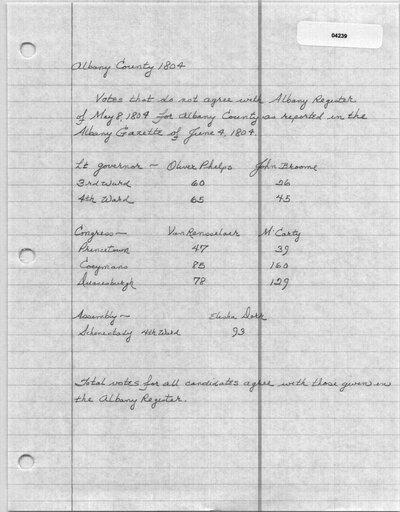 04239
Albany County 1804
Votes that do not agree with Albany Register
of May 8, 1804 for Albany County as reported in the
Albany Gazette of June 4, 1804.
Lt governor — Oliver Phelps John Broome
3rd Ward 60 26
4th Ward 65 45
Congress — Van Rensselaer McCarty
Princetown 47 39
Coeymans 85 160
Duanesburgh 78 129
Assembly — Elisha Dorr
Schenectady 4th Ward 93
Total votes for all candidates agree with those given in
the Albany Register.